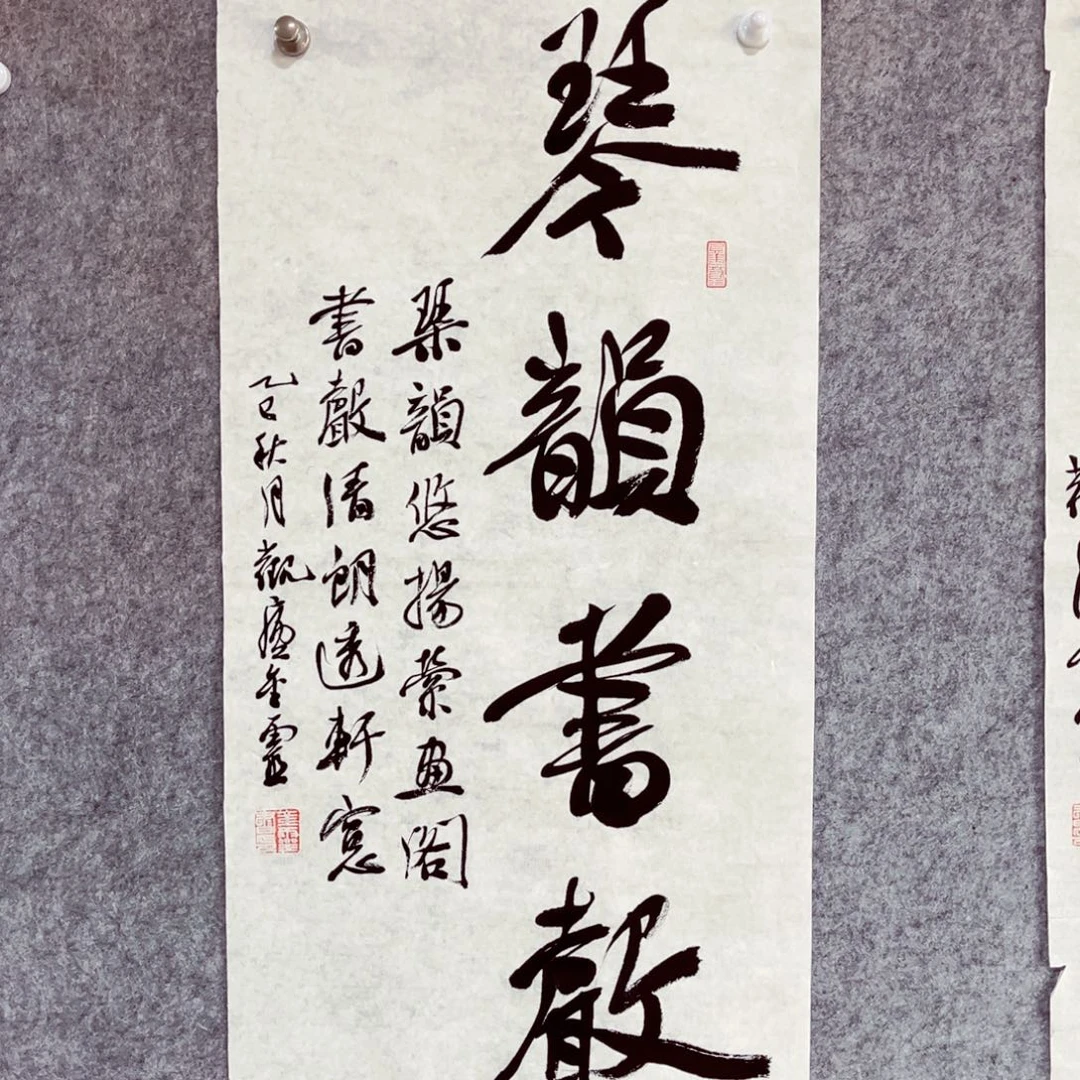 琴韻書聲
琹韻悠揚縈畫閣
書聲清朗透軒窓
乙巳秋月觀廬金靈